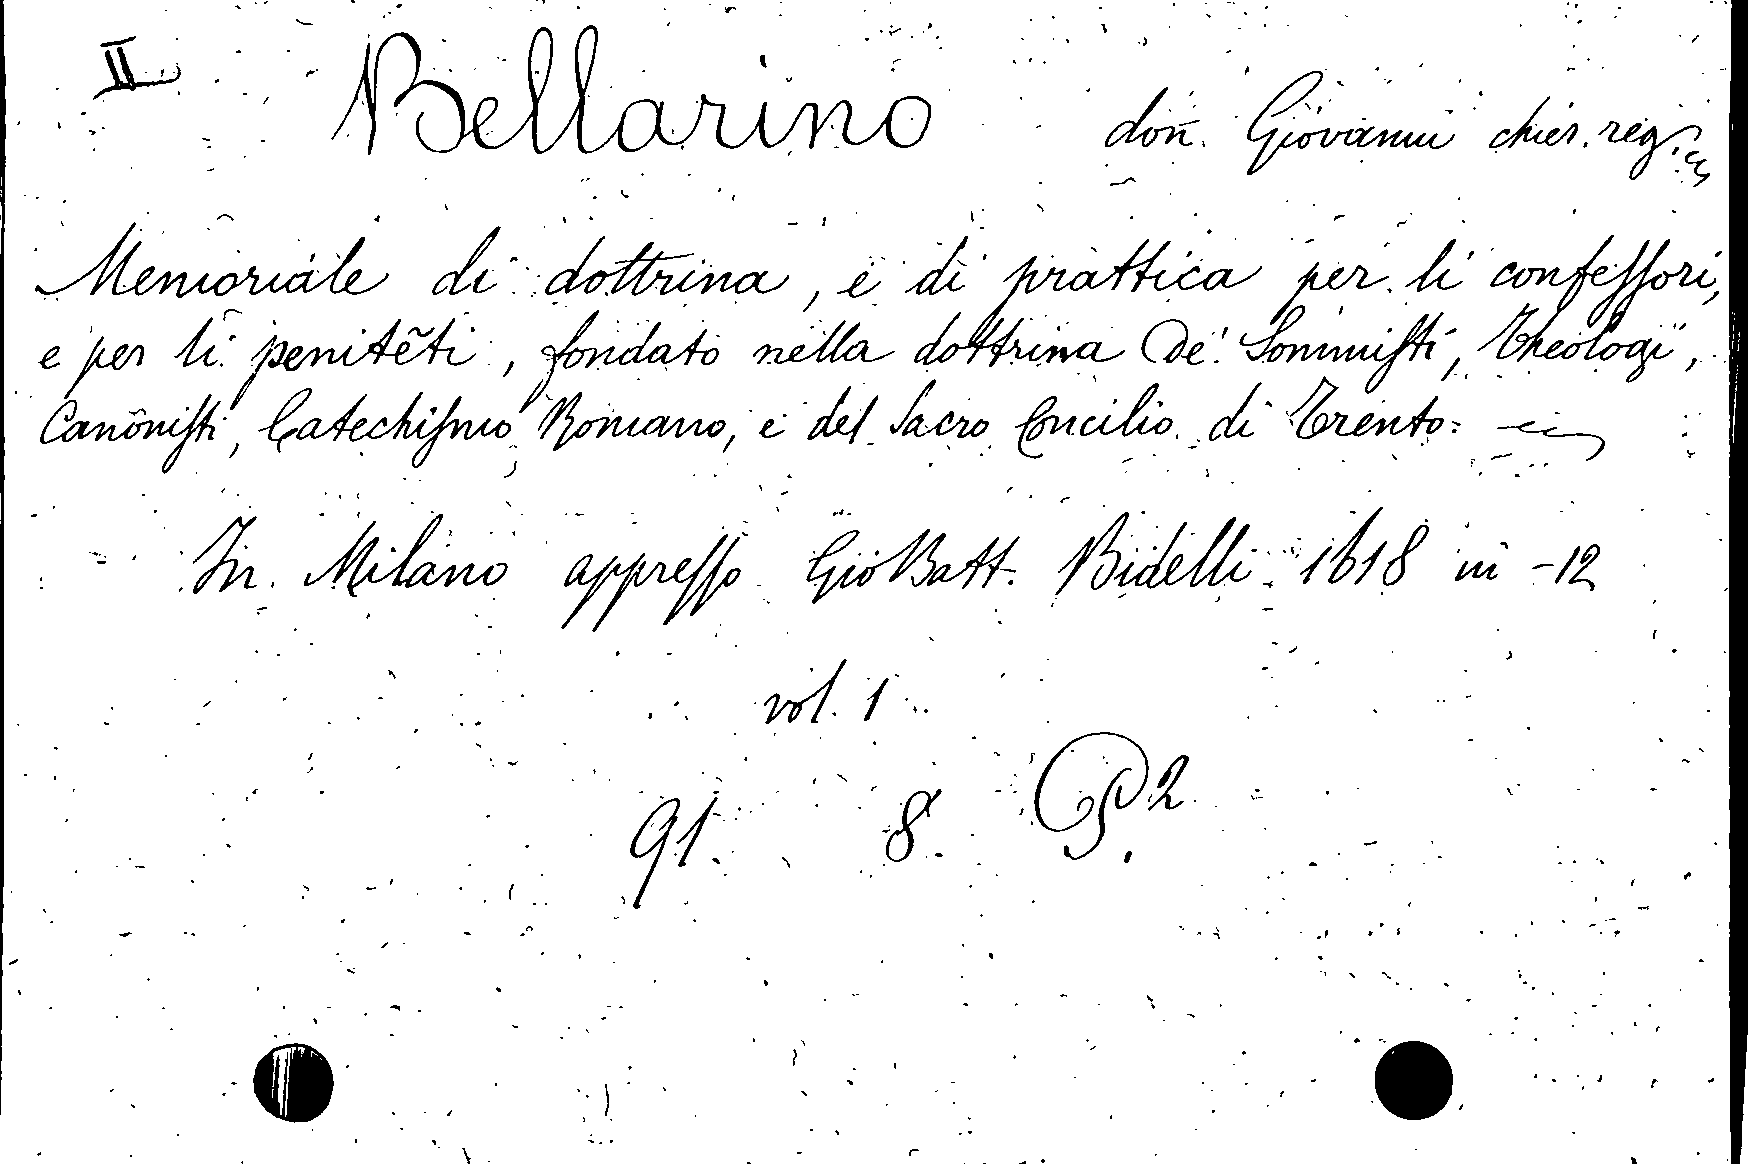 II Bellarino don. Giovanni chier. reg.
Memoriale di dottrina, e di prattica per li confeſſori,
e per li penitẽti, fondato nella dottrina de' Sommiſti, Theologi,
Canoniſti, Catechiſmo Romano, e del Sacro Concilio di Trento.
In Milano appreſſo Gio Batt. Bidelli 1618 in -12
vol. 1
91. 8. P.2